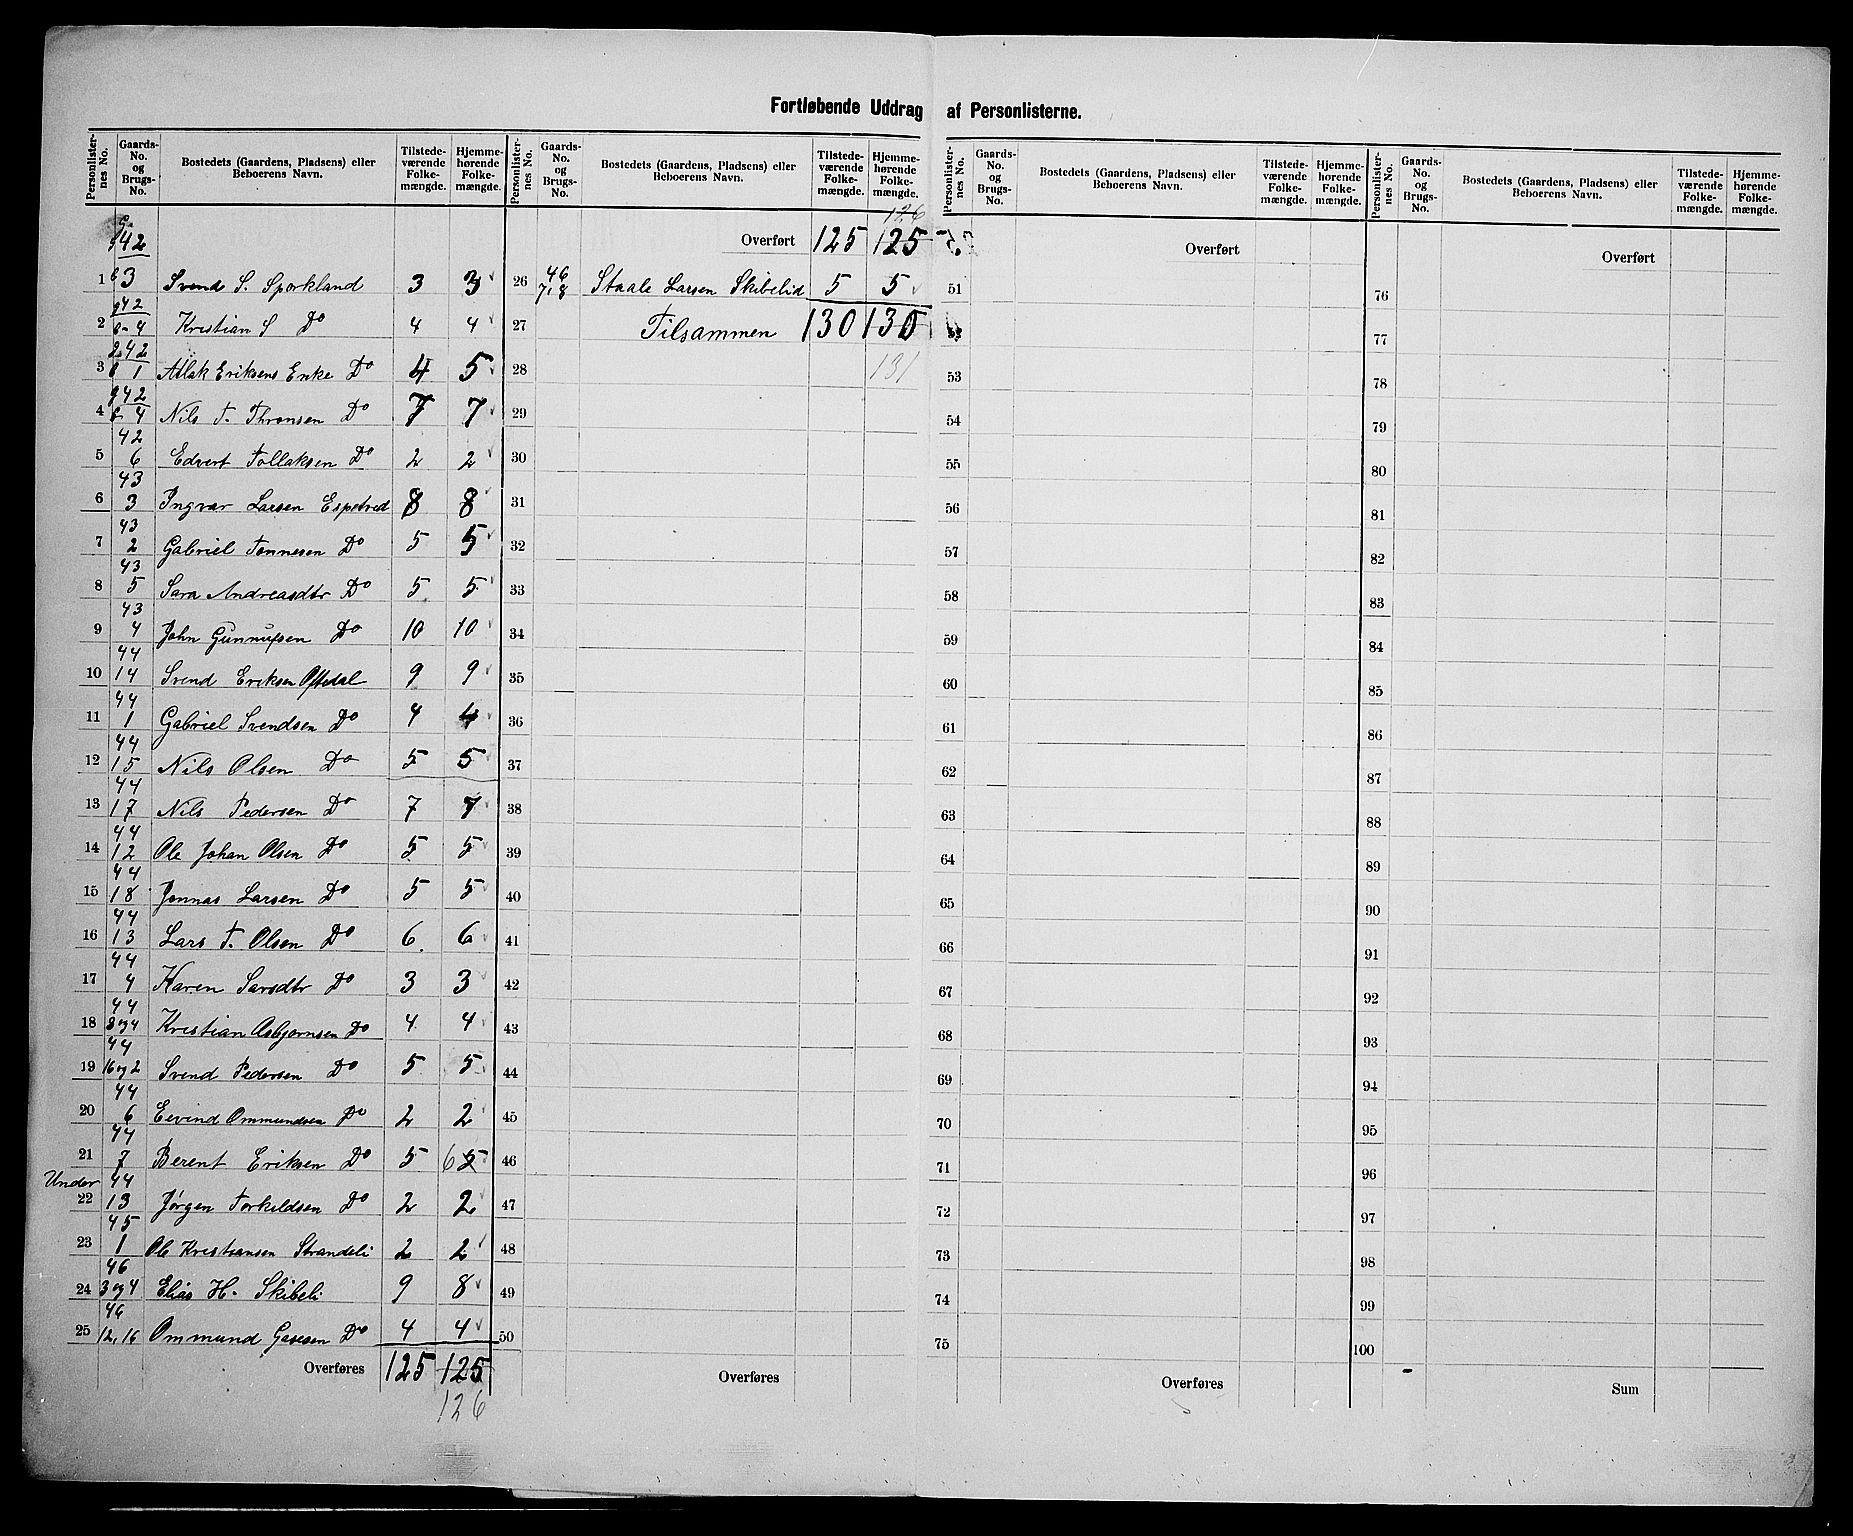 Fortløbende Uddrag af Personlisterne.
Personlisternes No. Gaards-No. og Brugs-No. Bostedets (Gaardens, Pladsens) eller Beboerens Navn. Tilstedeværende Folkemængde. Hjemmehørende Folkemængde.
Personlisternes No. Gaards-No. og Brugs-No. Bostedets (Gaardens, Pladsens) eller Beboerens Navn. Tilstedeværende Folkemængde. Hjemmehørende Folkemængde.
Personlisternes No. Gaards-No. og Brugs-No. Bostedets (Gaardens, Pladsens) eller Beboerens Navn. Tilstedeværende Folkemængde. Hjemmehørende Folkemængde.
Personlisternes No. Gaards-No. og Brugs-No. Bostedets (Gaardens, Pladsens) eller Beboerens Navn. Tilstedeværende Folkemængde. Hjemmehørende Folkemængde.
1 g 42 b 3 Svend S. Sporkland 3 3
2 g 42 b 4 Kristian S Do 4 4
3 g 42 b 1 Atlak Eriksens Enke Do 4 5
4 g 42 b 4 Nils T. Thronsen Do 7 7
5 42 6 Edvert Tollaksen Do 2 2
6 43 3 Ingvar Larsen Espetved 8 8
7 43 2 Gabriel Tønnesen Do 5 5
8 43 5 Sara Andreasdtr Do 5 5
9 43 4 John Gunnufsen Do 10 10
10 44 14 Svend Eriksen Oftedal 9 9
11 44 1 Gabriel Svendsen Do 4 4
12 44 15 Nils Olsen Do 5 5
13 44 17 Nils Pedersen Do 7 7
14 44 12 Ole Johan Olsen Do 5 5
15 44 18 Jonnas Larsen Do 5 5
16 44 13 Lars T. Olsen Do 6 6
17 44 4 Karen Larsdtr Do 3 3
18 44 3 og 4 Kristian Asbjørnsen Do 4 4
19 44 16 og 2 Svend Pedersen Do 5 5
20 44 6 Eivind Ommundsen Do 2 2
21 44 7 Berent Eriksen Do 5 6 5
22 Under 44 13 Jørgen Torkildsen Do 2 2
23 45 1 Ole Kristiansen Strandeli 2 2
24 46 3 og 4 Elias H. Skibeli 9 8
25 46 12, 16 Ommund Do 4 4
Overføres 125 125
126
126
Overført 125 125
26 46 7, 8 Staale Larsen Skibelid 5 5
27 Tilsammen 130 130
28 131
29
30
31
32
33
34
35
36
37
38
39
40
41
42
43
44
45
46
47
48
49
50
Overføres
Overført
51
53
54
55
56
57
58
59
60
61
62
63
64
65
66
67
68
69
70
71
72
73
74
75
Overføres
Overført
76
77
78
79
80
81
82
83
84
85
86
87
88
89
90
91
92
93
94
95
96
97
98
99
100
Sum